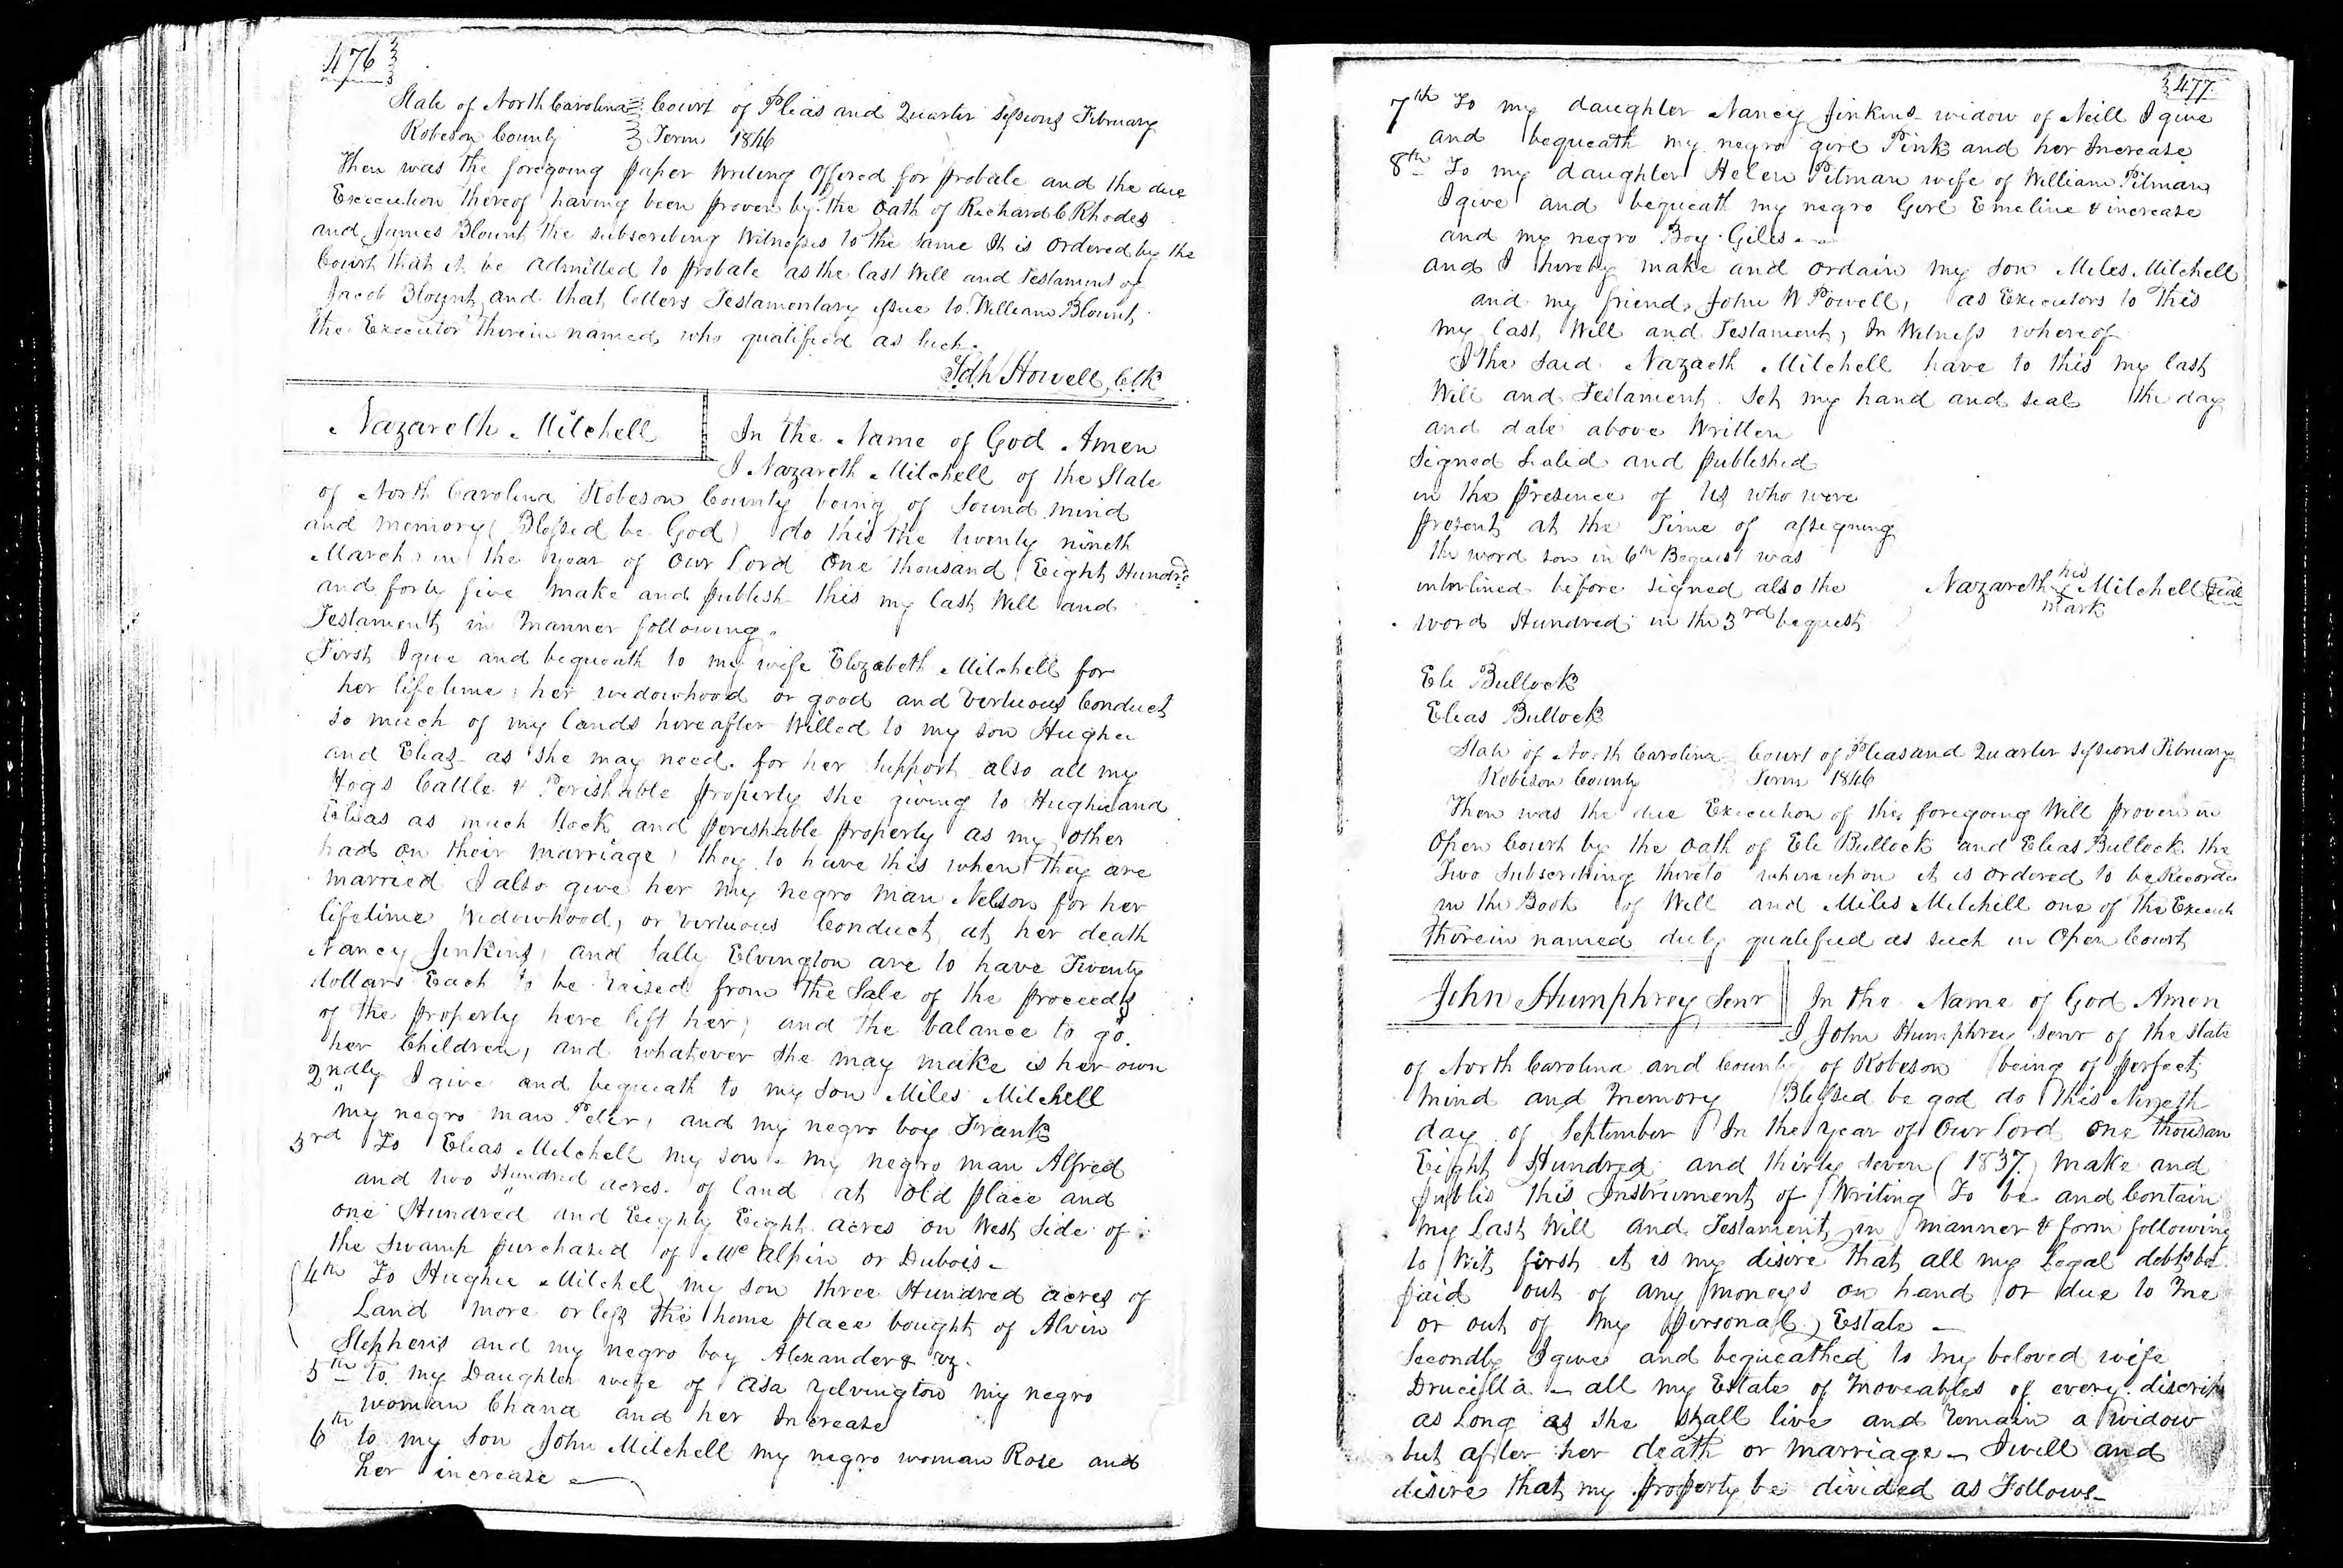 476
State of North Carolina Court of Pleas and Quarter Sessions February
Robeson County Term 1846
Then was the foregoing paper Writing Offered for probate and the due
Execution thereof having been proven by the Oath of Richard C Rhodes
and James Blount the subscribing Witnesses to the same It is ordered by the
Court that it be admitted to probate as the last Will and Testament of
Jacob Blount and that letters Testamentary issue to William Blount
the Executor therein named who qualified as such.
Howell Clk
Nazareth Mitchell
In the Name of God Amen
I Nazareth Mitchell of the State
of North Carolina Robeson County being of Sound mind
and memory (Blessed be God) do this the twenty nineth
March in the year of Our Lord One thousand Eight Hundrd
and forty five make and publish this my last Will and
Testament in manner following.
First I give and bequeath to my wife Elizabeth Mitchell for
her lifetime, her widowhood or good and Vertuous Conduct
so much of my lands hereafter Willed to my son Hughee
and Elias as she may need for her Support also all my
Hogs Cattle & Perishable property she giving to Hughee and
Elias as much Stock and perishable property as my other
had on their marriage, they to have this when they are
married I also give her my negro man Nelson for her
lifetime Widowhood, or Vertuous Conduct, at her death
Nancy Jinkins, and Sally Elvington are to have Twenty
dollars Each to be raised from the Sale of the proceeds
of the property here left her, and the balance to go
her Children, and whatever she may make is her own
2ndly I give and bequeath to my Son Miles Mitchell
my negro man Peter, and my negro boy Frank
3rd To Elias Mitchell my son my negro man Alfred
and two Hundred acres of land at Old place and
one Hundred and Eighty Eight acres on West Side of
the Swamp purchased of McAlpin or Dubois
4th To Hughee Mitchel my son three Hundred acres of
Land more or less the home place bought of Alvin
Stephens and my negro boy Alexander &
5th to my Daughter wife of Asa Yelvington my negro
woman Chana and her Increase
6th to my Son John Mitchell my negro woman Rose and
her increase
477
7th To my daughter Nancy Jinkins widow of Neill I give
and bequeath my negro girl Pink and her Increase
8th To my daughter Helen Pitman wife of William Pitman
I give and bequeath my negro Girl Emeline & increase
and my negro Boy Giles
and I hereby make and ordain my son Miles Mitchell
and my friend John W Powell, as Executors to this
my last Will and Testament, In Witness whereof
I the Said Nazaeth Mitchell have to this my last
Will and Testament Set my hand and seal the day
and date above Written
Signed Sealed and published
in the presence of us who were
present at the Time of assigning
the word son in 6th Bequest was
interlined before signed also the
word Hundred in the 3rd bequest
his
Nazareth Mitchell Seal
mark
Eli Bullock
Elias Bullock
State of North Carolina Court of Pleas and Quarter Sessions February
Robeson County Term 1846
Then was the due Execution of the foregoing Will proven in
Open Court by the oath of Eli Bullock and Elias Bullock the
Two Subscribing thereto whereupon it is ordered to be Recorded
in the Book of Will and Miles Mitchell one of the Execut
therein named duly qualified as such in Open Court
John Humphrey Senr
In the Name of God Amen
I John Humphrey Senr of the State
of North Carolina and County of Robeson being of perfect
mind and memory Blessed be god do this Nineth
day of September In the year of Our Lord one thousan
Eight Hundred and thirty seven (1837) make and
publis this Instrument of Writing To be and Contain
my Last Will and Testament in manner & form following
to Wit, first it is my desire that all my Legal debts be
paid out of any moneys on hand or due to me
or out of my personal Estate
Secondly I give and bequeathed to my beloved wife
Drucilla all my Estate of moveables of every discrip
as Long as she shall live and remain a widow
but after her death or marriage I will and
desire that my property be divided as Follows